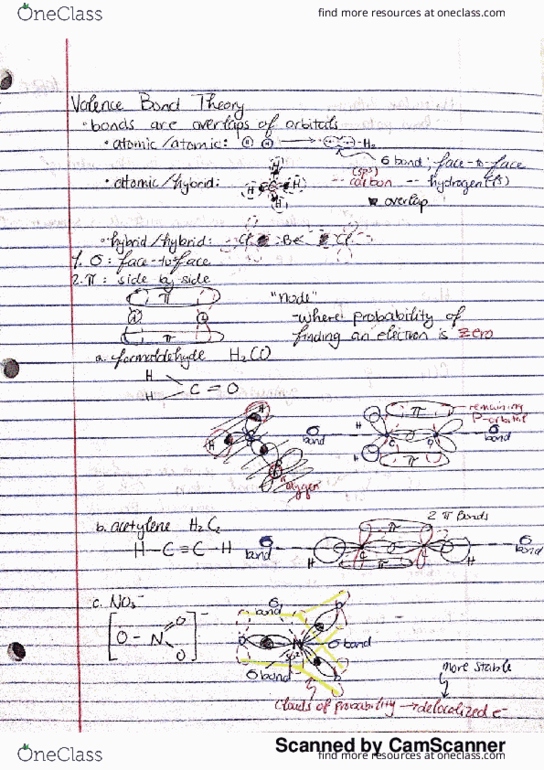 OneClass
find more resources at oneclass.com
Valence Bond Theory
• bonds are overlaps of orbitals
• atomic/atomic: H H → H₂
σ bond: face-to-face
• atomic/hybrid: H H C H H
(sp³) carbon -- hydrogen (s)
overlap
• hybrid/hybrid: Cl Be Cl
1. σ: face-to-face
2. π: side by side
π
π
"node"
- where probability of
finding an electron is zero
a. formaldehyde H₂CO
H
C = O
H
σ bond
π
remaining
p-orbital
H
C O
σ bond
H
π
oxygen
b. acetylene H₂C₂
2 π Bonds
H-C≡C-H
σ bond
π
H C C H
π
σ bond
c. NO₃⁻
σ bond
[O-N O O]⁻
σ bond
σ bond
more stable
clouds of probability → delocalized e⁻
Scanned by CamScanner
OneClass
find more resources at oneclass.com